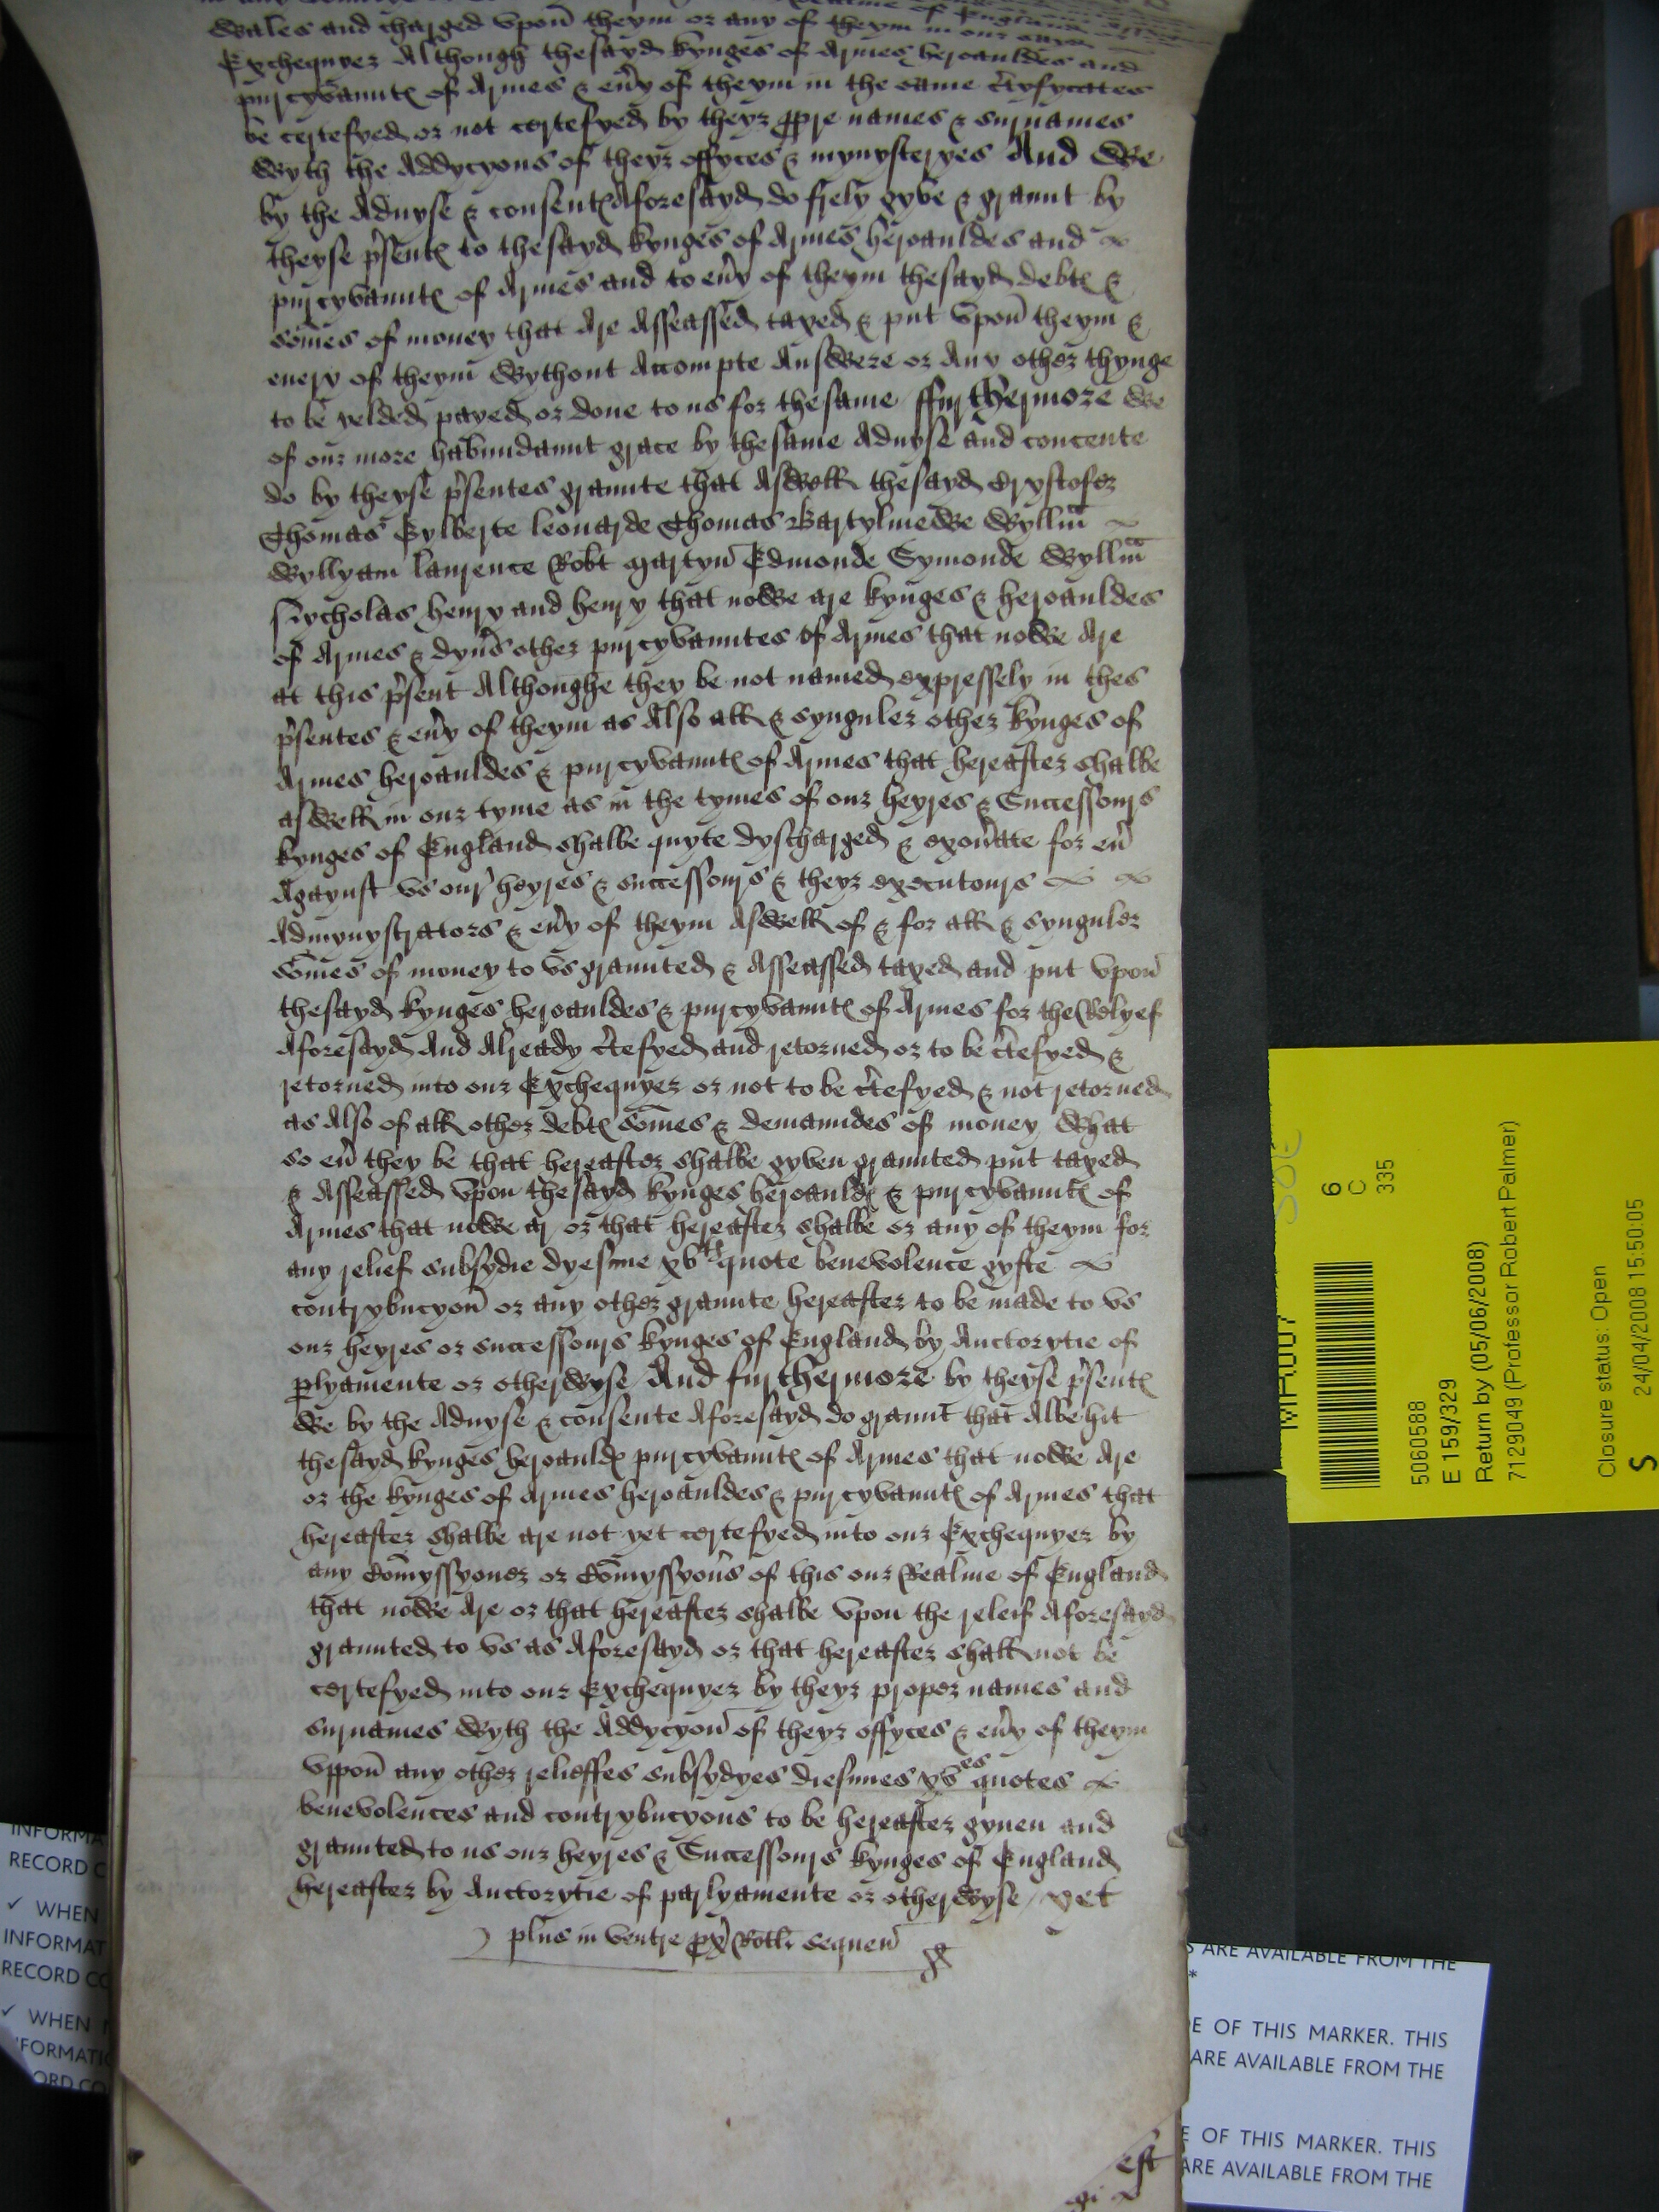 Wales and charged vpon theym or any of theym in our sayd
Exchequyer Although thesayd kynges of Armes heroauldes and
purcyvauntes of Armes & eu'y of theym in the same c'tyfycates
be certefyed or not certefyed by theyr ppre names & surnames
Wyth the Addycyons of theyr offyces & mynysteryes And We
by the Aduyse & consent Aforesayd do frely gyve & graunt by
theyse p'sentes to thesayd kynges of Armes heroauldes and
purcyvauntes of Armes and to eu'y of theym thesayd debtes &
somes of money that Are Asseassed taxed & put vpon theym &
euery of theym Wythout Accompte AnsWere or Any other thynge
to be yelded payed or done to us for thesame ffurthermore We
of our more habundaunt grace by thesame Aduyse and concente
do by theyse p'sentes graunte that AsWell thesayd Crystofer
Thomas Gylberte leonarde Thomas BartylmeWe Wyllm
Wyllyam laurence Robt Martyn Edmonde Symonde Wyllm
Nycholas henry and henry that noWe are kynges & heroauldes
of Armes & dyu's other purcyvauntes of Armes that noWe Are
at this p'sent Althoughe they be not named expressely in thes
p'sentes & eu'y of theym as Also all & synguler other kynges of
Armes heroauldes & purcyvauntes of Armes that hereafter shalbe
asWell in our tyme as in the tymes of our heyres & Successours
kynges of England shalbe quyte dyscharged & exon'ate for eu'
Agaynst vs our heyres & successours & theyr executours
Admynystrators & eu'y of theym AsWell of & for all & synguler
somes of money to vs graunted & Asseassed taxed and put vpon
thesayd kynges heroauldes & purcyvauntes of Armes for the Relyef
Aforesayd And Already c'tefyed and retorned or to be c'tefyed &
retorned into our Exchequyer or not to be c'tefyed & not retorned
as Also of all other debtes somes & demaundes of money What
so eu' they be that hereafter shalbe gyven graunted put taxed
& Asseassed vpon thesayd kynges heroauldes & purcyvauntes of
Armes that noWe ar or that hereafter shalbe or any of theym for
any relief subsydie dyesme xvth quote benevolence gyfte
contrybucyon or any other graunte hereafter to be made to vs
our heyres or successours kynges of England by Auctorytie of
plyamente or otherWyse And furthermore by theyse p'sentes
We by the Aduyse & consente Aforesayd do graunt that Albe hit
thesayd kynges heroauldes purcyvauntes of Armes that noWe Are
or the kynges of Armes heroauldes & purcyvauntes of Armes that
hereafter shalbe are not yet certefyed into our Exchequyer by
any Comyssyoner or Comyssyon's of this our Realme of England
that noWe Are or that hereafter shalbe vpon the releif Aforesayd
graunted to vs as Aforesayd or that hereafter shall not be
certefyed into our Exchequyer by theyr proper names and
surnames Wyth the Addycyon of theyr offyces & eu'y of theym
vppon any other relieffes subsydyes diesmes xves quotes
benevolences and contrybucyons to be hereafter gyuen and
graunted to us our heyres & Successours kynges of England
hereafter by Auctorytie of parlyamente or otherWyse / yet
plus in ventre px' Rotli sequen'
est
6
C
335
5060588
E 159/329
Return by (05/06/2008)
7129049 (Professor Robert Palmer)
Closure status: Open
S 24/04/2008 15:50:05
RECORD
✓ WHEN
INFORMAT
RECORD CO
✓ WHEN
ARE AVAILABLE FROM THE
*
E OF THIS MARKER. THIS
ARE AVAILABLE FROM THE
E OF THIS MARKER. THIS
ARE AVAILABLE FROM THE